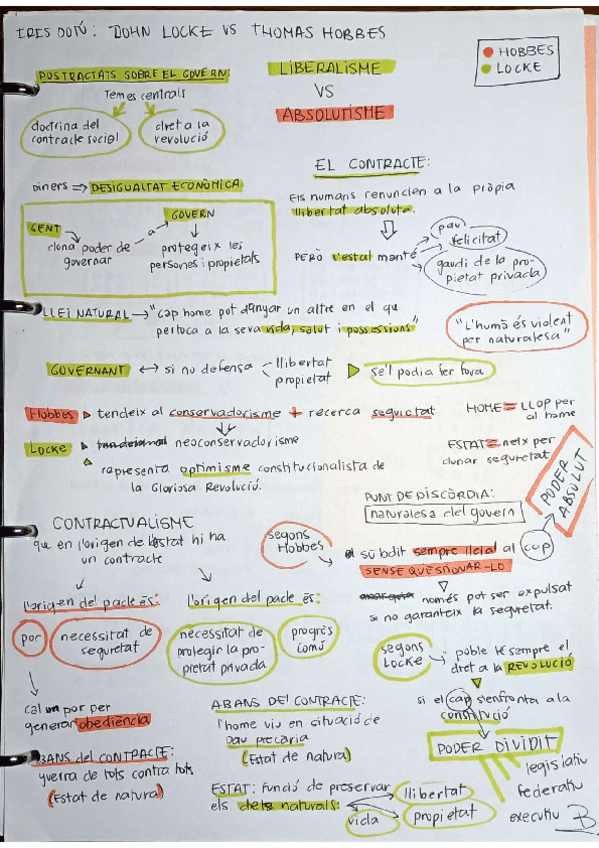 IRES DOTÚ: JOHN LOCKE VS THOMAS HOBBES
HOBBES
LOCKE
POSTRACTATS SOBRE EL GOVERN:
Temes centrals
doctrina del
contracte social
dret a la
revolució
LIBERALISME
VS
ABSOLUTISME
Diners ⇒ DESIGUALTAT ECONÒMICA
GENT
dona poder de
governar
a
GOVERN
protegeix les
persones i propietats
EL CONTRACTE:
Els humans renuncien a la pròpia
llibertat absoluta.
PERÒ l'estat manté
pau
felicitat
gaudi de la pro-
pietat privada
LLEI NATURAL → "Cap home pot danyar un altre en el que
pertoca a la seva vida, salut i possessions"
"L'humà és violent
per naturalesa"
GOVERNANT ↔ si no defensa
llibertat
propietat
se'l podia fer fora
Hobbes ▶ tendeix al conservadorisme + recerca seguretat
Locke ▶ neoconservadorisme
representa optimisme constitucionalista de
la Gloriosa Revolució.
HOME = LLOP per
al home
ESTAT = neix per
donar seguretat
PODER
ABSOLUT
CONTRACTUALISME
que en l'origen de l'estat hi ha
un contracte
l'origen del pacte és:
por
necessitat de
seguretat
cal un por per
generar obediència
ABANS del CONTRACTE:
guerra de tots contra tots
(Estat de natura)
l'origen del pacte és:
necessitat de
protegir la pro-
pietat privada
progrés
comú
ABANS DEL CONTRACTE:
l'home viu en situació de
pau precària
(Estat de natura)
ESTAT: funció de preservar
els drets naturals:
llibertat
vida
propietat
PUNT DE DISCÒRDIA:
naturalesa del govern
segons
Hobbes
el súbdit sempre lleial al cap
SENSE QÜESTIONAR-LO
només pot ser expulsat
si no garanteix la seguretat.
segons
LOCKE
poble té sempre el
dret a la REVOLUCIÓ
si el cap s'enfronta a la
constitució
PODER DIVIDIT
legislatiu
federatiu
executiu